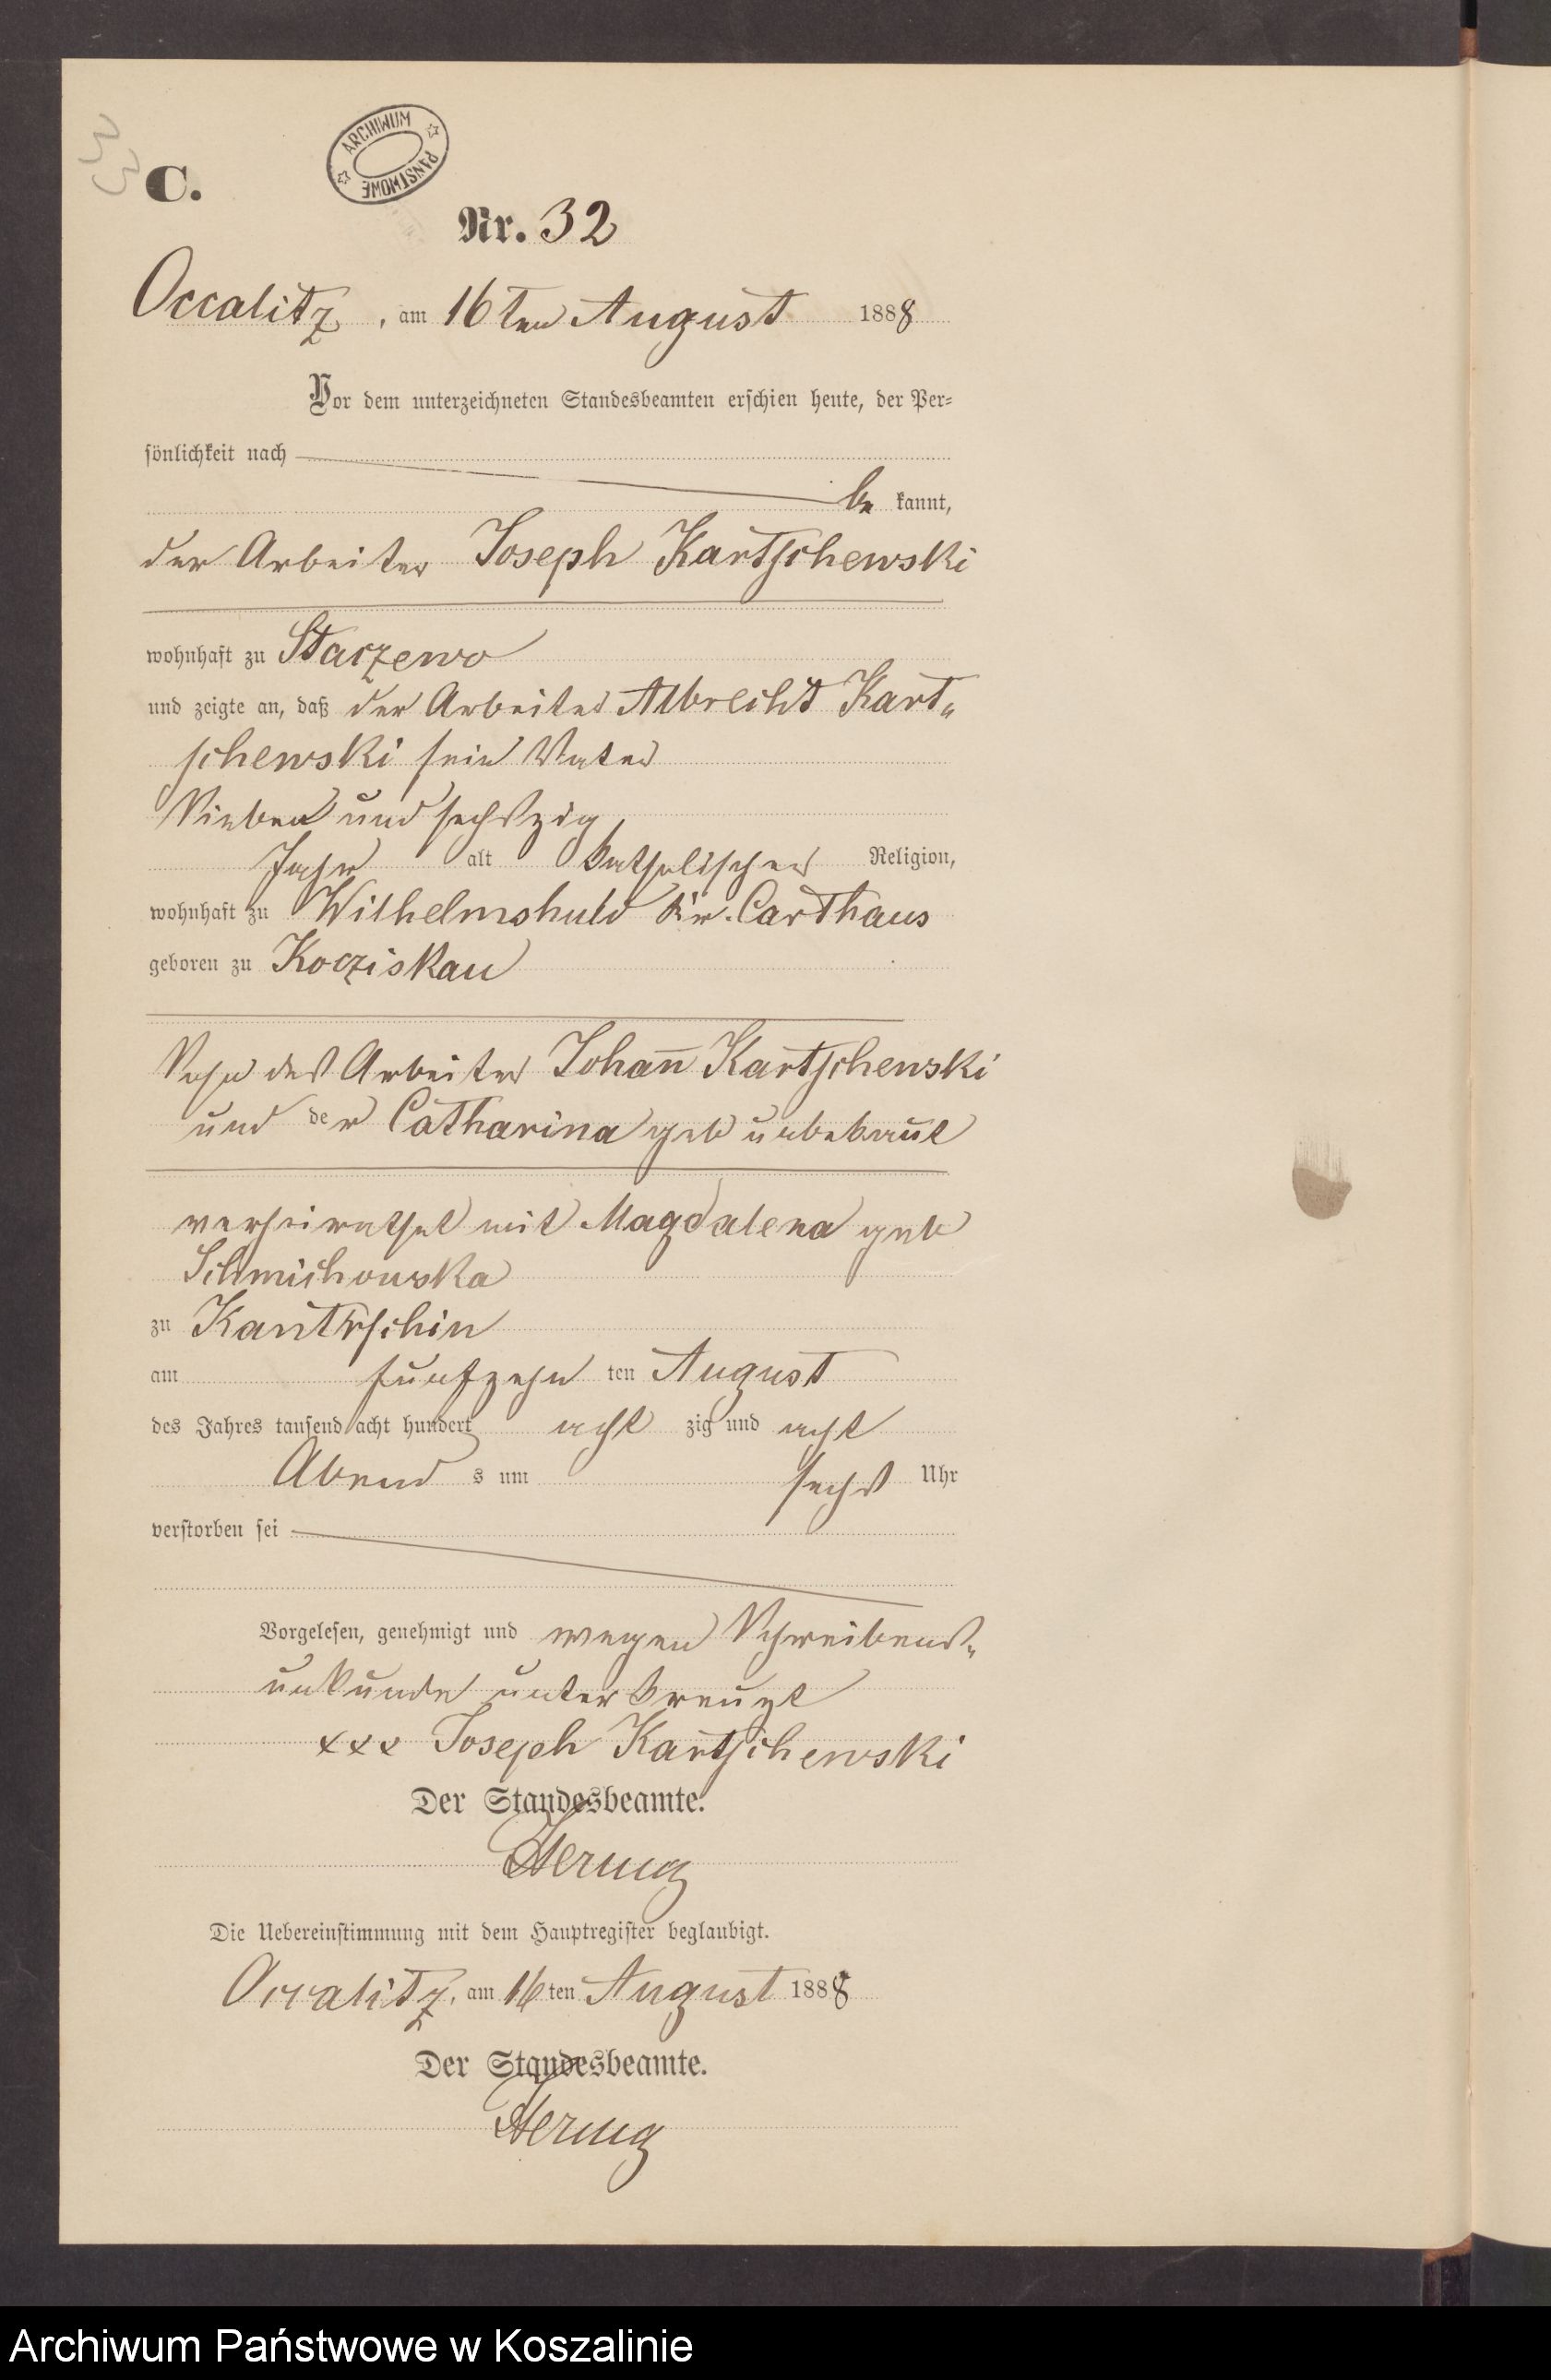 33
C.
ARCHIWUM PAŃSTWOWE
Nr. 32
Occalitz, am 16ten August 1888
Vor dem unterzeichneten Standesbeamten erschien heute, der Per-
sönlichkeit nach
be kannt,
der Arbeiter Joseph Kartschewski
wohnhaft zu Staczewo
und zeigte an, daß der Arbeiter Albrecht Kart-
schewski sein Vater
Sieben und sechszig
Jahr alt katholischer Religion,
wohnhaft zu Wilhelmshuld Kr. Carthaus
geboren zu Kocziskau
Sohn des Arbeiter Johan̄ Kartschewski
und der Catharina geb unbekan̄t
verheirathet mit Magdalena geb
Schmichowska
zu Kantrschin
am fünfzehn ten August
des Jahres tausend acht hundert acht zig und acht
Abend s um sechs Uhr
verstorben sei
Vorgelesen, genehmigt und wegen Schreibens-
unkunde unterkreuzt
xxx Joseph Kartschewski
Der Standesbeamte.
Die Uebereinstimmung mit dem Hauptregister beglaubigt.
Occalitz, am 16ten August 1888
Der Standesbeamte.
Archiwum Państwowe w Koszalinie